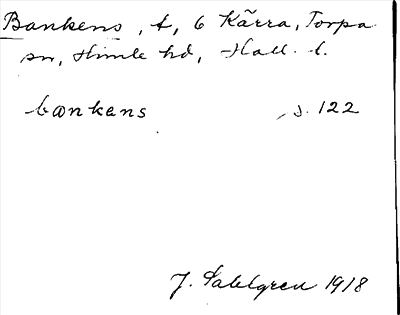 Bankens, t, 6 Kärra, Torpa
sn, Himle hd, Hall. l.
bankens s. 122
J. Sahlgren 1918